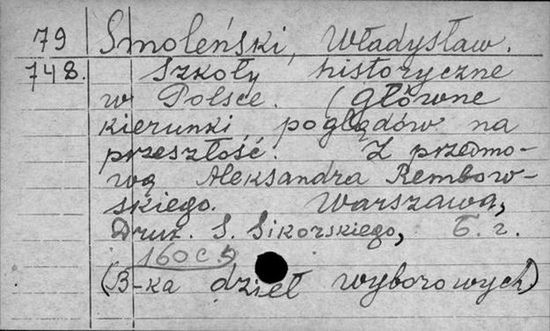 79 Smoleński, Władysław.
748. Szkoły historyczne
w Polsce. (Główne
kierunki poglądów na
przeszłość. Z przedmo-
wą Aleksandra Rembow-
skiego. Warszawa,
Druk. S. Sikorskiego, b. r.
160 c.
(B-ka dzieł wyborowych)